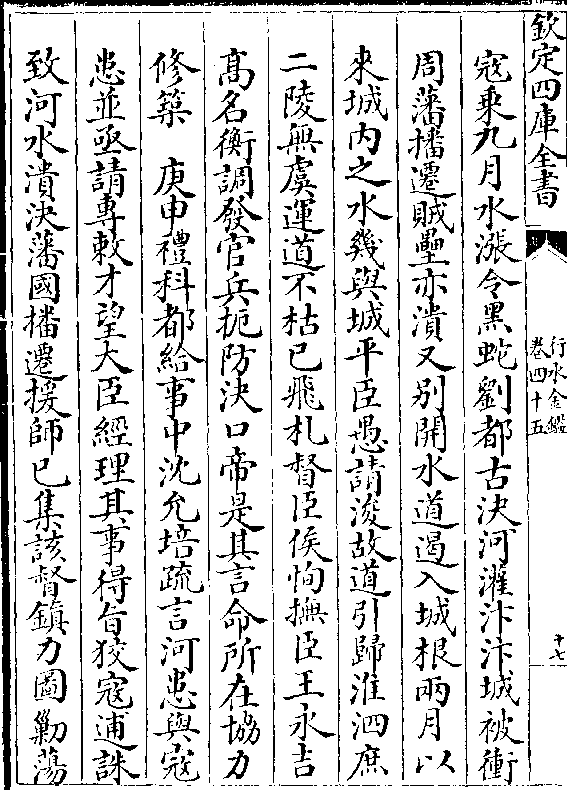 欽定四庫全書
行水金鑑
卷四十五
十七
寇乘九月水漲令黑蛇劉都古決河灌汴汴城被衝
周藩播遷賊壘亦潰又别開水道遏入城根兩月以
來城内之水幾與城平臣愚請浚故道引歸淮泗庶
二陵無虞運道不枯已飛札督臣侯恂撫臣王永吉
髙名衡調發官兵扼防決口帝是其言命所在協力
修築　庚申禮科都給事中沈允培疏言河患與寇
患並亟請專敕才望大臣經理其事得旨狡寇逋誅
致河水潰決藩國播遷援師已集該督鎮力圖勦蕩